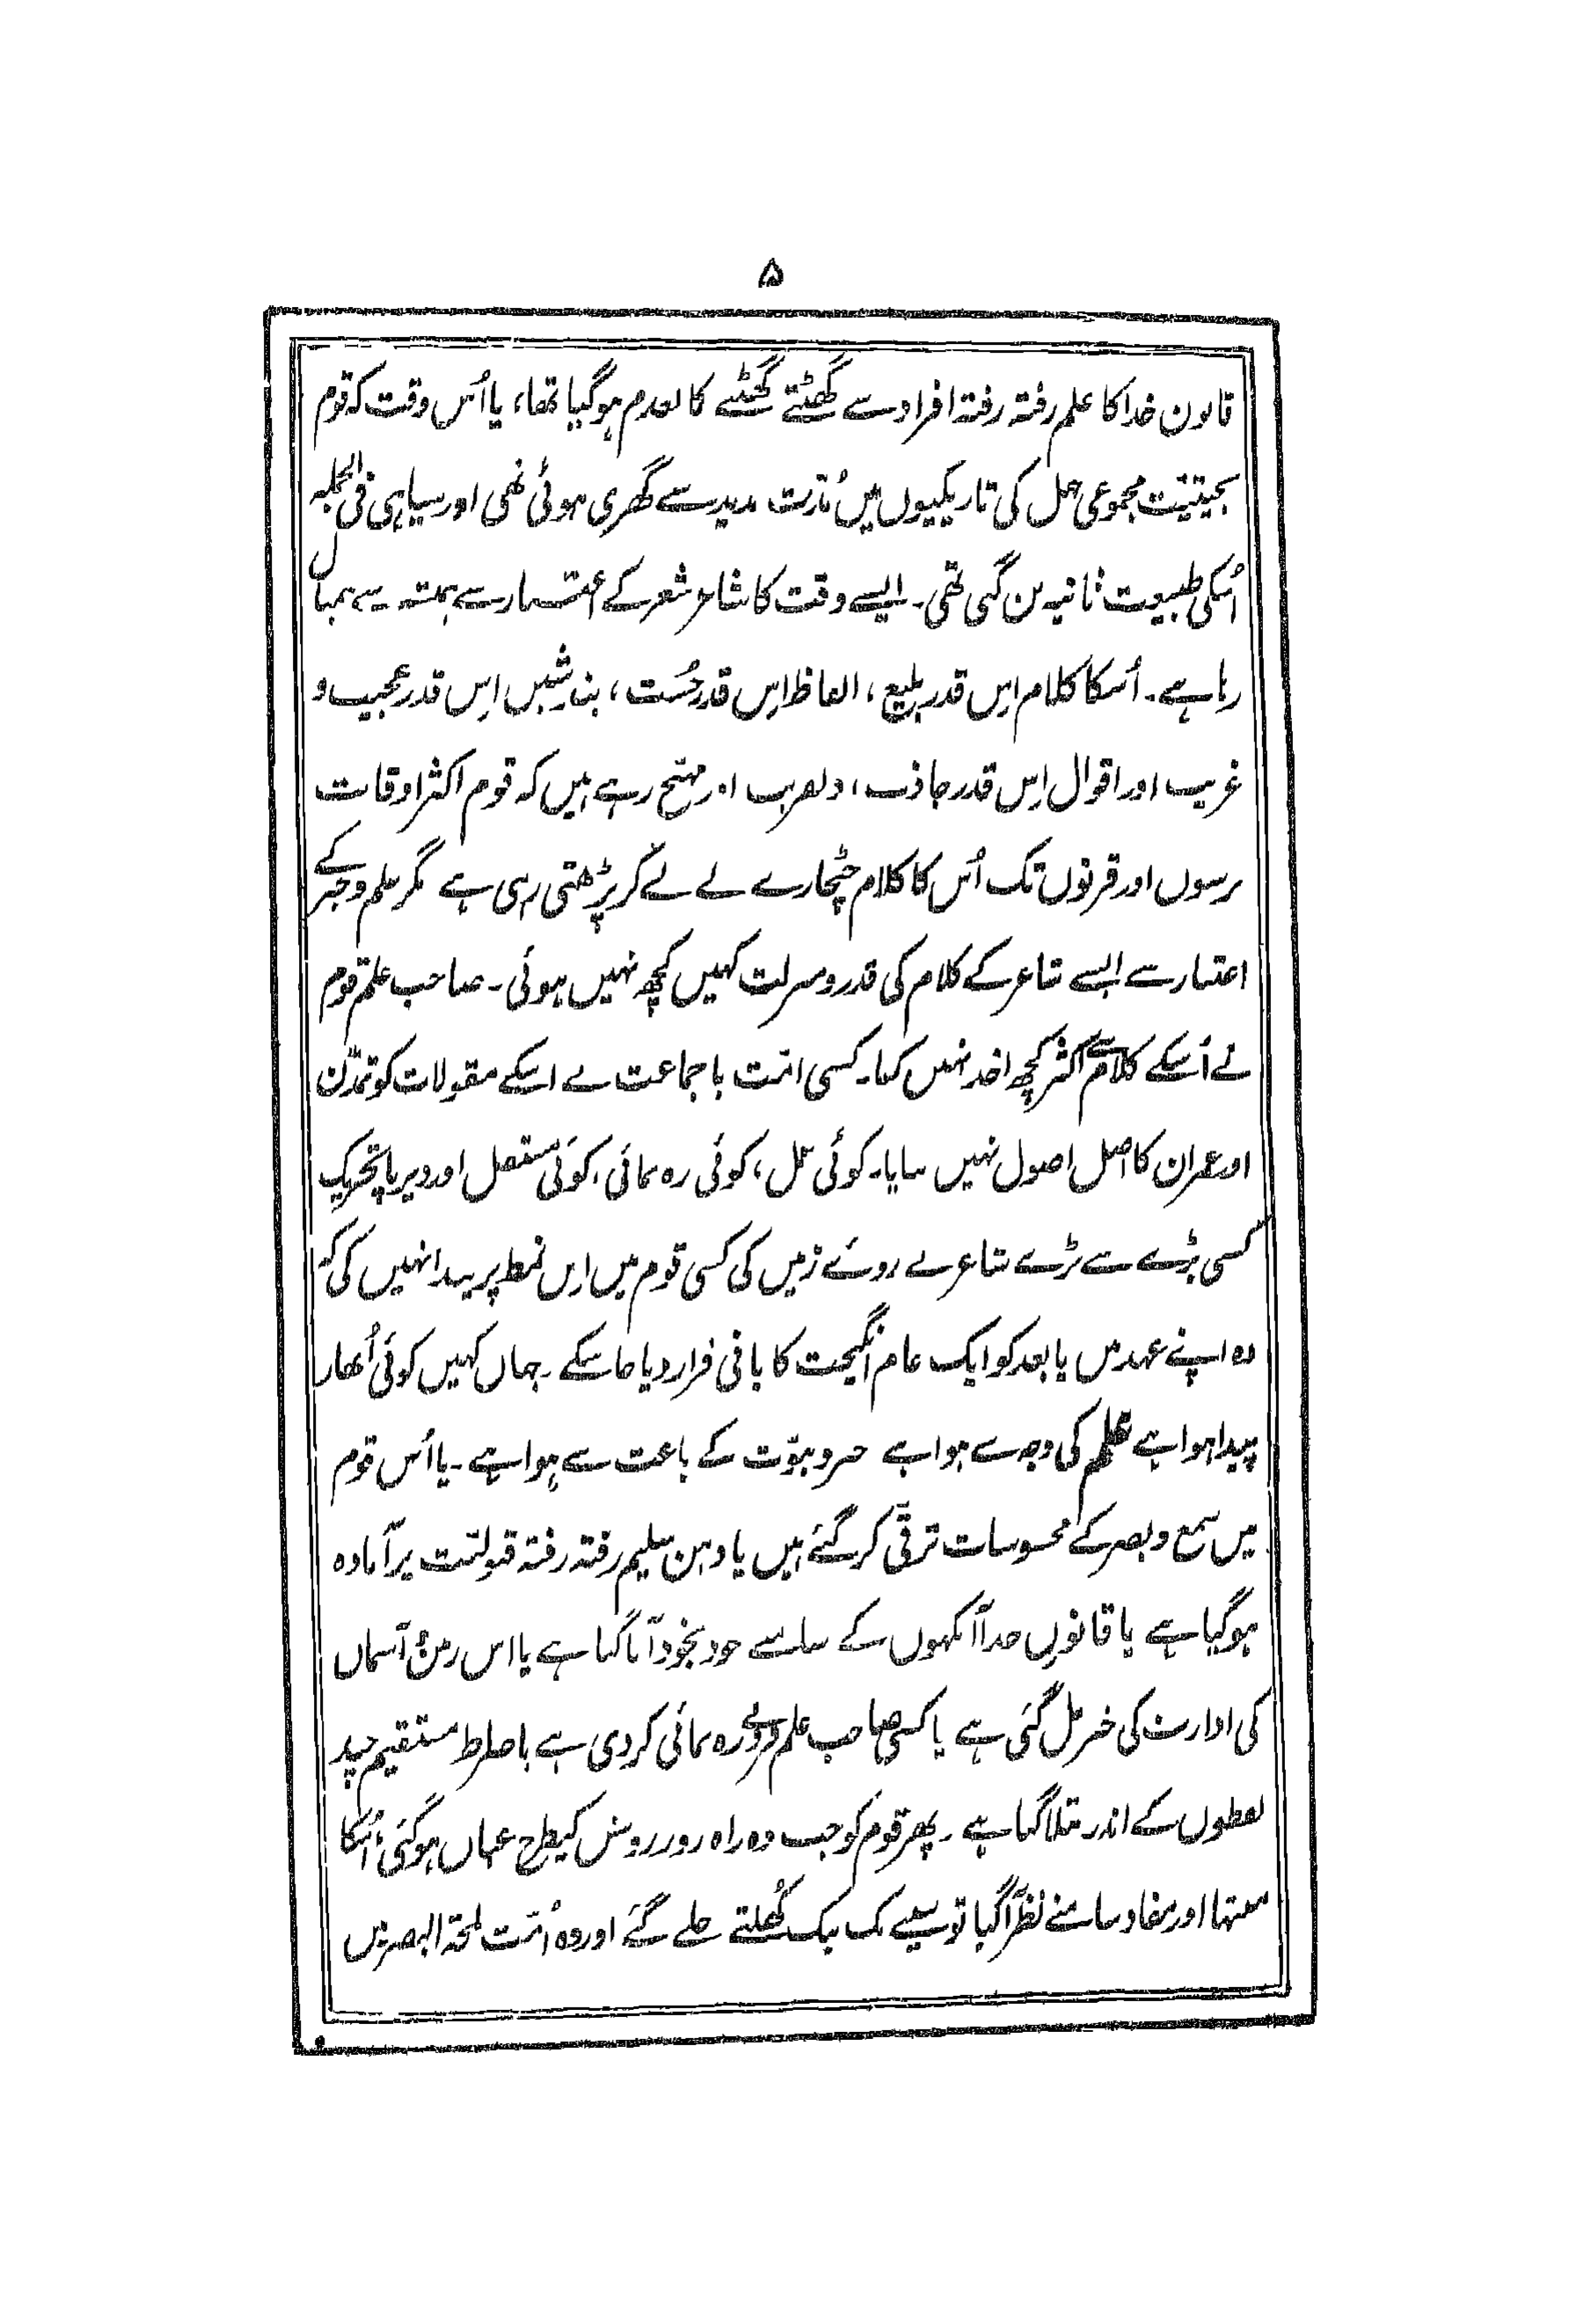 ۵
قانون خدا کا علم رفتہ رفتہ افراد سے گھٹتے گھٹتے کالعدم ہوگیا تھا، یا اُس وقت کہ قوم
بحیثیت مجموعی جہل کی تاریکیوں میں مُدّت مدید سے گھری ہوئی تھی اور سیاہی فی الجملہ
اُسکی طبیعت ثانیہ بن گئی تھی۔ ایسے وقت کا شاعر شعر کے اعتبار سے ہمیشہ سے بے مثال
رہا ہے۔ اُسکا کلام اِس قدر بلیغ، الفاظ اِس قدر چُست، بندشیں اِس قدر عجیب و
غریب اور اقوال اِس قدر جاذب، دلفریب اور مہیّج رہے ہیں کہ قوم اکثر اوقات
برسوں اور قرنوں تک اُس کا کلام چٹخارے لے لے کر پڑھتی رہی ہے مگر علم و خبر کے
اعتبار سے ایسے شاعر کے کلام کی قدر و منزلت کہیں کچھ نہیں ہوئی۔ صاحب علم قوم
نے اُسکے کلام سے اکثر کچھ اخذ نہیں کیا۔ کسی امّت یا جماعت نے اسکے مقولات کو تمدّن
اور عمران کا اصل اصول نہیں بنایا۔ کوئی عمل، کوئی رہ نمائی، کوئی مستقل اور دیرپا تحریک
کسی بڑے سے بڑے شاعر نے روئے زمین کی کسی قوم میں اِس نمط پر پیدا نہیں کی کہ
وہ اپنے عہد میں یا بعد کو ایک عام انگیخت کا بانی قرار دیا جا سکے۔ جہاں کہیں کوئی اُبھار
پیدا ہوا ہے علم کی وجہ سے ہوا ہے خبر و نبوّت کے باعث سے ہوا ہے۔ یا اُس قوم
میں سمع و بصر کے محسوسات ترقّی کر گئے ہیں یا ذہن سلیم رفتہ رفتہ قبولیّت پر آمادہ
ہوگیا ہے یا قانونِ خدا آنکھوں کے سامنے خود بخود آتا گیا ہے یا اس زمین آسماں
کی ادارت کی خبر مل گئی ہے یا کسی صاحب علم فرد نے رہ نمائی کر دی ہے یا صراط مستقیم چند
لفظوں کے اندر بتلا گیا ہے۔ پھر قوم کو جب وہ راہ روز روشن کیطرح عیاں ہوگئی، اُسکا
منتہا اور مفاد سامنے نظر آگیا تو سینے یک بیک کُھلتے چلے گئے اور وہ اُمّت لمحۃ البصر میں